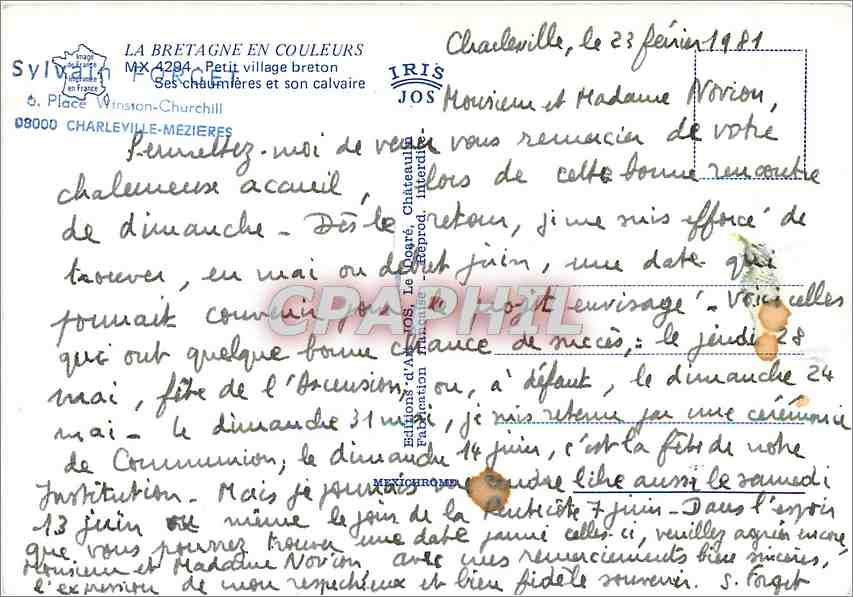 LA BRETAGNE EN COULEURS
MX 4294 - Petit village breton
Ses chaumières et son calvaire
Image de France imprimée en France
Sylvain FORGET
6, Place Winston-Churchill
08000 CHARLEVILLE-MÉZIÈRES
IRIS
JOS
Editions d'Art JOS, Le Doaré, Châteaulin
Fabrication française - Reprod. interdite
MEXICHROME
CPAPHIL
Charleville, le 23 février 1981
Monsieur et Madame Novion,
Permettez-moi de venir vous remercier de votre
chaleureux accueil, lors de cette bonne rencontre
de dimanche - Dès le retour, je me suis efforcé de
trouver, en mai ou début juin, une date qui
pourrait convenir pour le projet envisagé - Voici celles
qui ont quelque bonne chance de succès : le jeudi 28
mai, fête de l'Ascension, ou, à défaut, le dimanche 24
mai - Le dimanche 31 mai, je suis retenu par une cérémonie
de Communion, le dimanche 14 juin, c'est la fête de notre
Institution - Mais je pourrais me rendre libre aussi le samedi
13 juin ou même le jour de la Pentecôte 7 juin - Dans l'espoir
que vous pourrez trouver une date parmi celles-ci, veuillez agréer encore,
Monsieur et Madame Novion, avec mes remerciements bien sincères,
l'expression de mon respectueux et bien fidèle souvenir. S. Forget